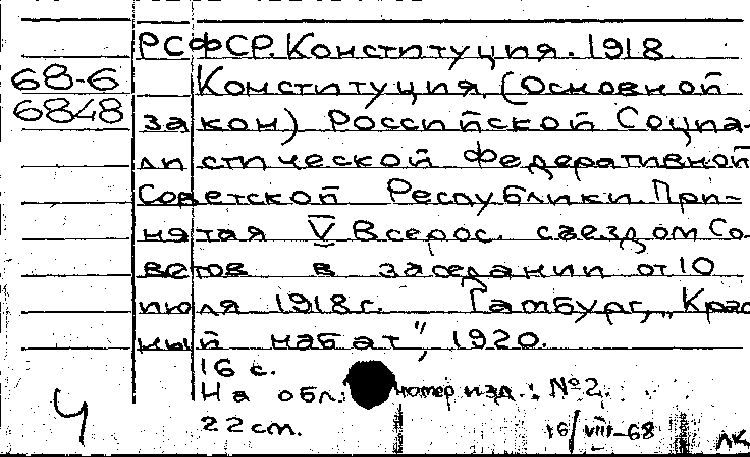 РСФСР. Конституция. 1918.
68-6 Конституция (Основной
6848 закон) Российской Социа-
листической Федеративной
Советской Республики. При-
нятая V Всерос. съездом Со-
ветов в заседании от 10
июля 1918 г. Гамбург, „Крас
ный набат", 1920.
16 с.
На обл.: номер изд.: №2.
22 см.
Ч 16/VIII-68 ЛК